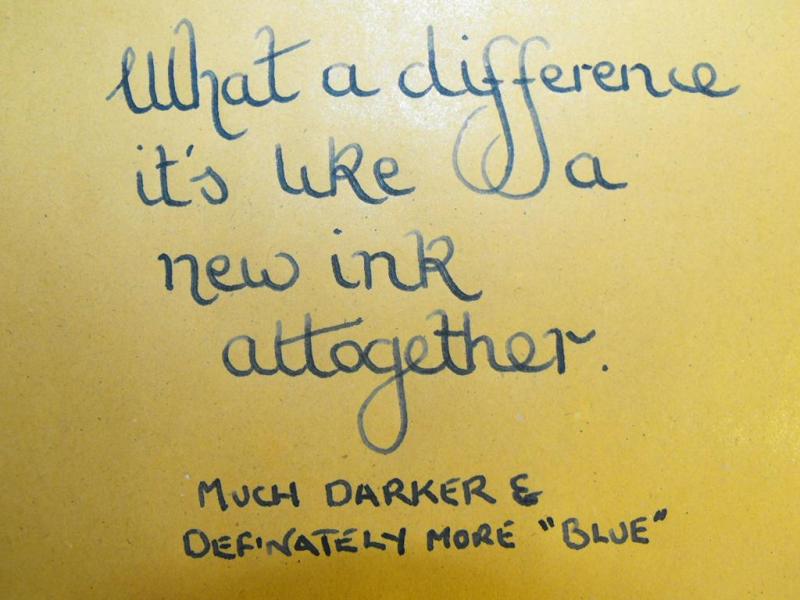 What a difference
it's like a
new ink
alttogether.
MUCH DARKER &
DEFINATELY MORE "BLUE"